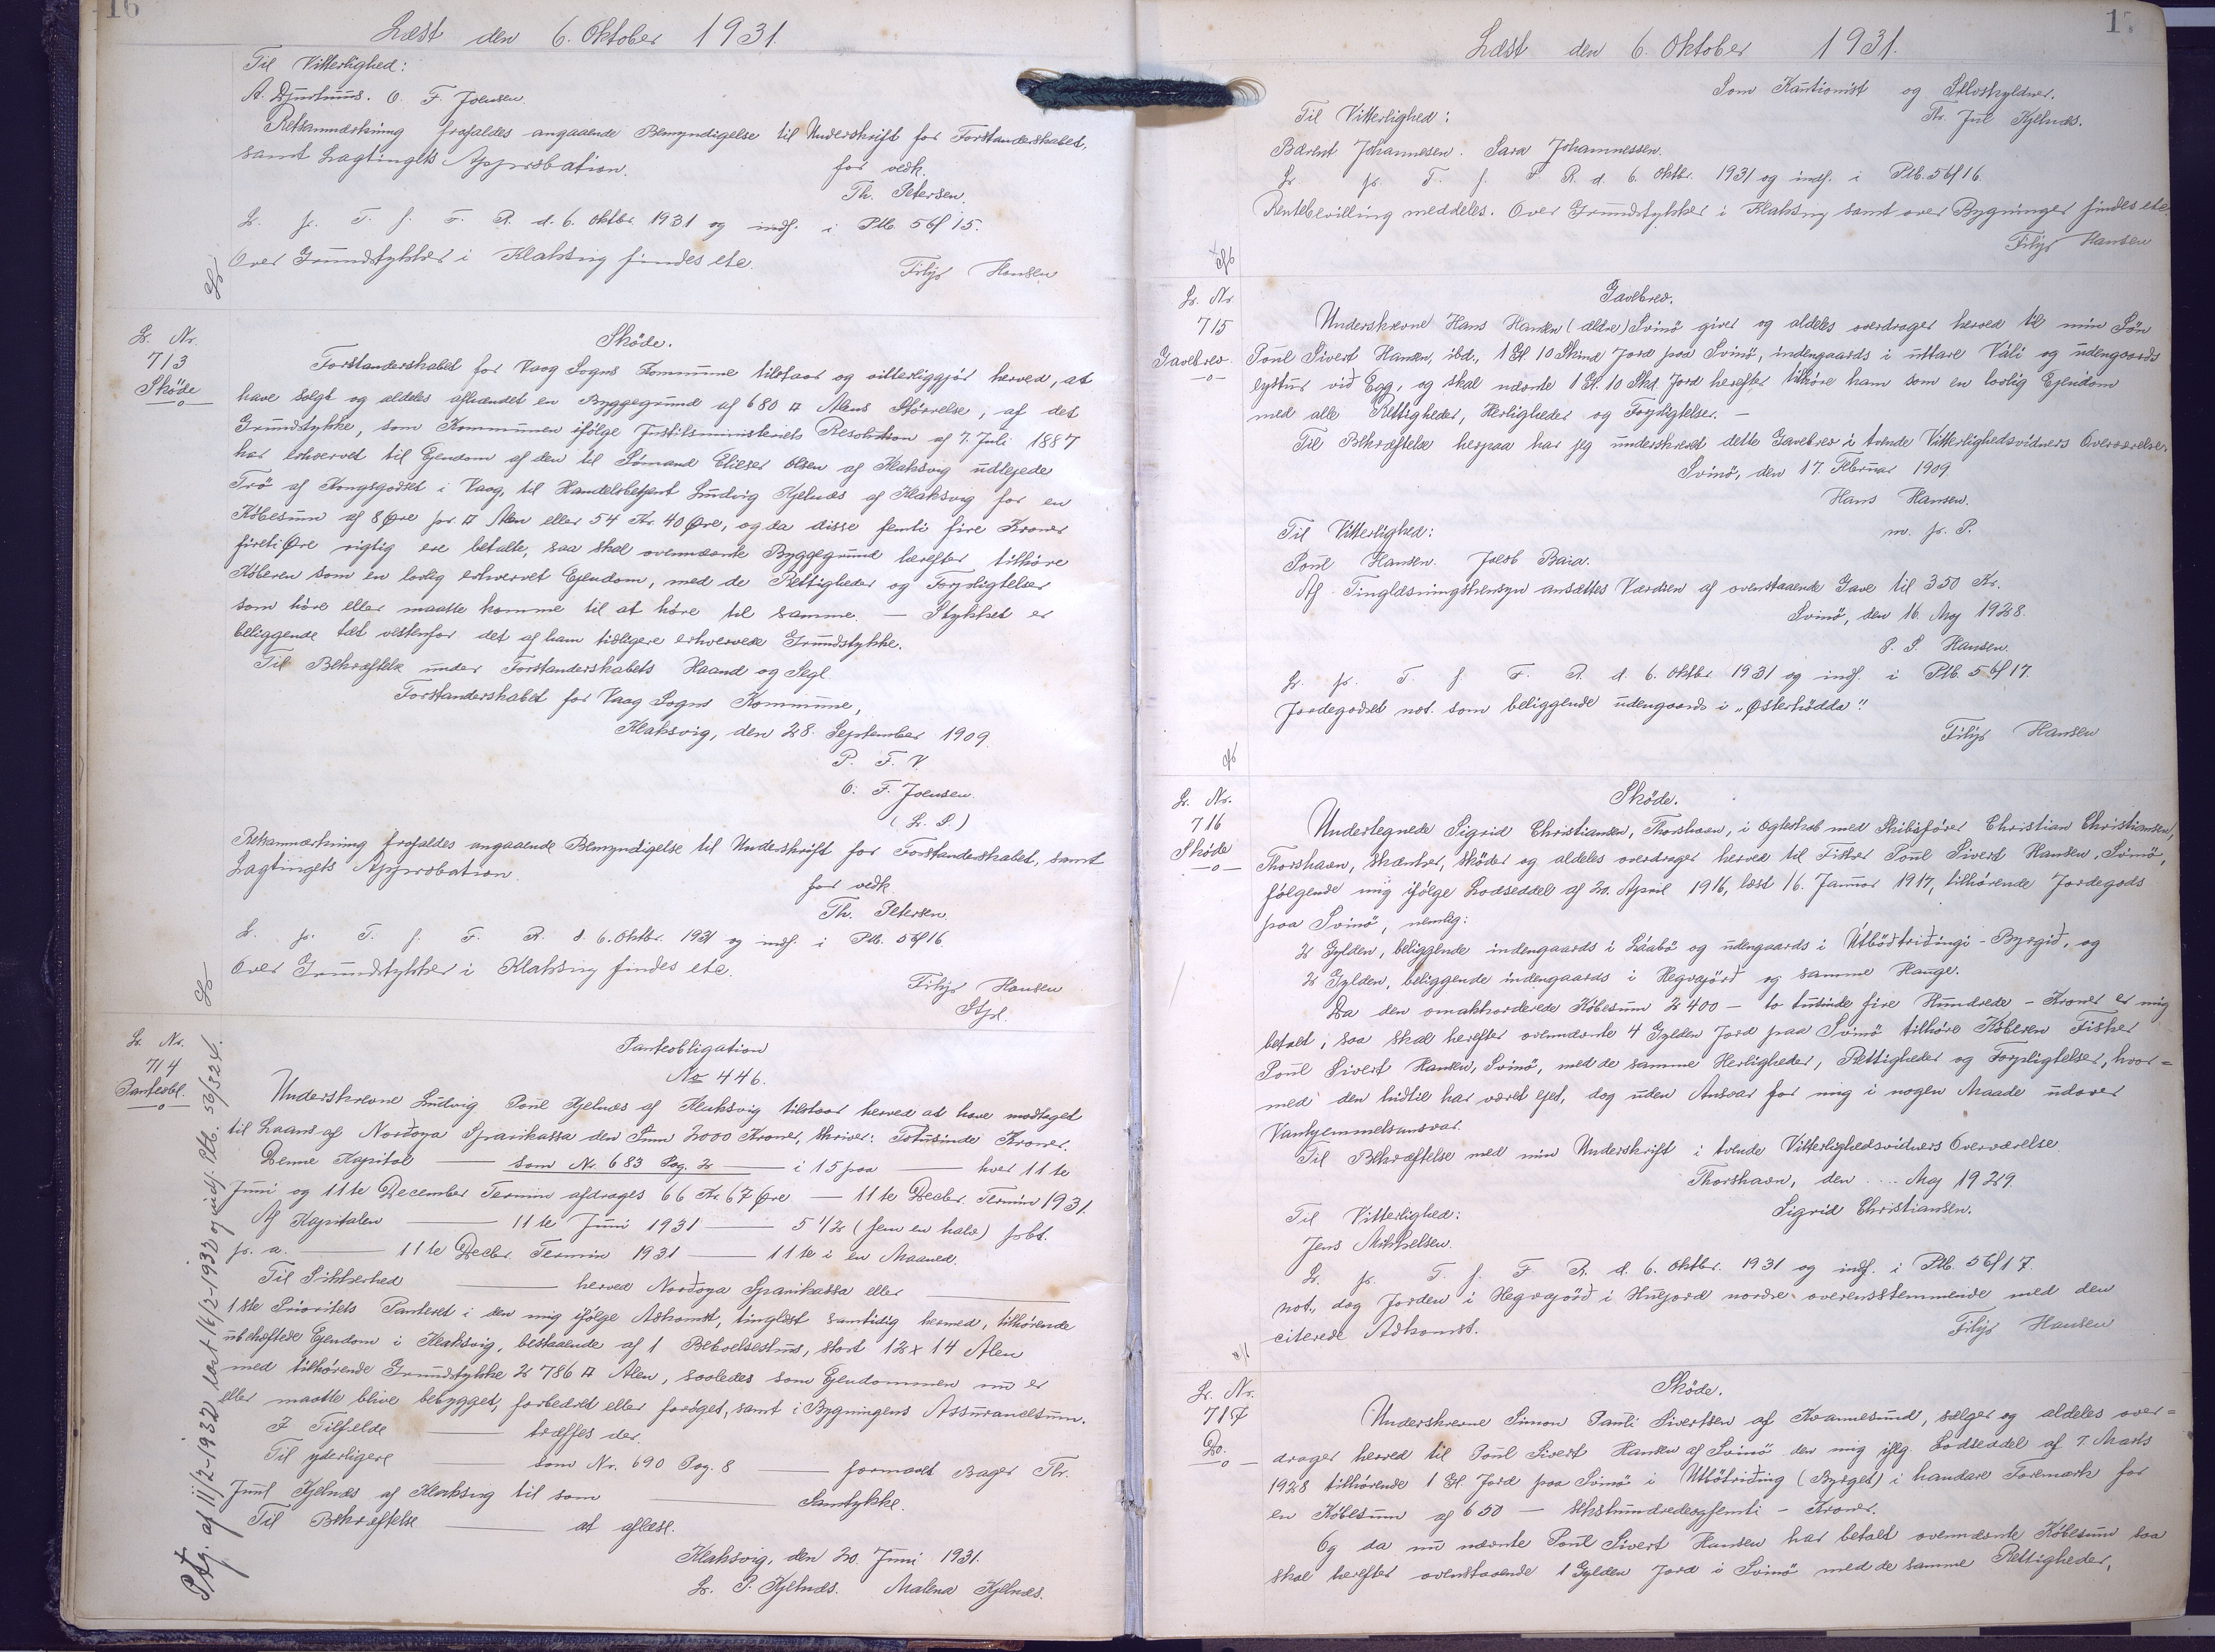 16
Læst den 6. Oktober 1931.
Til Vitterlighed:
A. Djurhuus. O. F. Joensen.
Retsanmærkning frafaldes angaaende Bemyndigelse til Underskrift for Forstanderskabet,
samt Lagtingets Approbation.
for vedk.
Th. Petersen.
L. p. T. f. F. R. d. 6. Oktbr. 1931 og indf. i Ptb. 56/15.
Over Grundstykker i Klaksvig findes etc.
Filip Hansen
L. Nr.
713
Sköde
Sköde.
Forstanderskabet for Vaag Sogns Kommune tilstaar og vitterliggjör herved, at
have solgt og aldeles afhændet en Byggegrund af 680 □ Alens Störrelse, af det
Grundstykke, som Kommunen ifölge Justitsministeriets Resolution af 7. Juli 1887
har erhvervet til Ejendom af den til Sömand Elieser Olsen af Klaksvig udlejede
Trö af Kongsgodset i Vaag, til Handelsbetjent Ludvig Kjelnæs af Klaksvig for en
Köbesum af 8 Øre pr □ Alen eller 54 Kr. 40 Øre, og da disse femti fire Kroner
fireti Øre rigtig ere betalte, saa skal ovennævnte Byggegrund herefter tilhöre
Köberen som en lovlig erhvervet Ejendom, med de Rettigheder og Forpligtelser
som höre eller maatte komme til at höre til samme. — Stykket er
beliggende tæt vestenfor det af ham tidligere erhvervede Grundstykke.
Til Bekræftelse under Forstanderskabets Haand og Segl.
Forstanderskabet for Vaag Sogns Kommune,
Klaksvig, den 28. September 1909.
P. F. V.
O. F. Joensen.
(L. S.)
Retsanmærkning frafaldes angaaende Bemyndigelse til Underskrift for Forstanderskabet, samt
Lagtingets Approbation.
for vedk.
Th. Petersen.
L. p. T. f. F. R. d. 6. Oktbr. 1931 og indf. i Ptb. 56/16.
Over Grundstykker i Klaksvig findes etc.
Filip Hansen
Stpl.
L. Nr.
714
Panteobl.
Ptg. af 11/2-1932 læst 16/2-1932 og indf. Ptb. 56/324.
Panteobligation
No 446.
Underskrevne Ludvig Poul Kjelnæs af Klaksvig tilstaar herved at have modtaget
til Laans af Norðoya Sparikassa den Sum 2000 Kroner, skriver: Totusinde Kroner.
Denne Kapital — som Nr. 683 Pag. 2 — i 15 paa — hver 11te
Juni og 11te December Termin afdrages 66 Kr. 67 Øre — 11te Decbr. Termin 1931.
Af Kapitalen — 11te Juni 1931 — 5 1/2 (fem en halv) pCt.
p. a. — 11te Decbr. Termin 1931 — 11te i en Maaned.
Til Sikkerhed — herved Norðoya Sparikassa eller —
1ste Prioritets Panteret i den mig ifölge Adkomst, tinglæst samtidig hermed, tilhörende
ubehæftede Ejendom i Klaksvig, bestaaende af 1 Beboelseshus, stort 12 x 14 Alen
med tilhörende Grundstykke 2786 □ Alen, saaledes som Ejendommen nu er
eller maatte blive bebygget, forbedret eller foröget, samt i Bygningens Assurancesum.
I Tilfælde — træffes der.
Til yderligere — som Nr. 690 Pag. 8 — formaaet Bager Thr.
Juul Kjelnæs af Klaksvig til som — Samtykke.
Til Bekræftelse — at aflæse.
Klaksvig, den 20. Juni 1931.
L. P. Kjelnæs. Malena Kjelnæs.
17
Læst den 6. Oktober 1931.
Som Kautionist og Selvskyldner.
Th. Jul Kjelnæs.
Til Vitterlighed:
Bærent Johannesen. Sara Johannessen.
L. p. T. f. F. R. d. 6. Oktbr. 1931 og indf. i Ptb. 56/16.
Rentebevilling meddeles. Over Grundstykker i Klaksvig samt over Bygninger findes etc.
Filip Hansen
L. Nr.
715
Gavebrev
Gavebrev.
Underskrevne Hans Hansen (ældre) Svinö giver og aldeles overdrager herved til min Sön
Poul Sivert Hansen, ibd., 1 Gl. 10 Skind Jord paa Svinö, indengaards i uttare Váli og udengaards
eystur við Egg, og skal nævnte 1 Gl. 10 Skd. Jord herefter tilhöre ham som en lovlig Ejendom
med alle Rettigheder, Herligheder og Forpligtelser. —
Til Bekræftelse herpaa har jeg underskrevet dette Gavebrev i tvende Vitterlighedsvidners Overværelse.
Svinö, den 17. Februar 1909
Hans Hansen.
m. p. P.
Til Vitterlighed:
Poul Hansen. Jacob Baia.
Af Tinglæsningshensyn ansættes Værdien af ovenstaaende Gave til 350 Kr.
Svinö, den 16. Maj 1928.
P. S. Hansen.
L. p. T. f. F. R. d. 6. Oktbr. 1931 og indf. i Ptb. 56/17.
Jordegodset not. som beliggende udengaards i „Østerhödda".
Filip Hansen
L. Nr.
716
Sköde
Sköde.
Undertegnede Sigrid Christiansen, Thorshavn, i Ægteskab med Skibsförer Christian Christiansen,
Thorshavn, skænker, sköder og aldeles overdrager herved til Fisker Poul Sivert Hansen, Svinö,
fölgende mig ifölge Lodseddel af 20. April 1916, læst 16. Januar 1917, tilhörende Jordegods
paa Svinö, nemlig:
2 Gylden, beliggende indengaards i Láabö og udengaards i Utböstriðingi-Byrgið, og
2 Gylden, beliggende indengaards i Hegrajörð og samme Hauge.
Da den omakkorderede Köbesum 2400 — to tusinde fire Hundrede — Kroner er mig
betalt, saa skal herefter ovennævnte 4 Gylden Jord paa Svinö tilhöre Köberen Fisker
Poul Sivert Hansen, Svinö, med de samme Herligheder, Rettigheder og Forpligtelser, hvor=
med den hidtil har været ejet, dog uden Ansvar for mig i nogen Maade udover
Vanhjemmelsansvar.
Til Bekræftelse med min Underskrift i tvende Vitterlighedsvidners Overværelse
Thorshavn, den .... Maj 1929.
Sigrid Christiansen.
Til Vitterlighed:
Jens Mikkelsen.
L. p. T. f. F. R. d. 6. Oktbr. 1931 og indf. i Ptb. 56/17.
not., dog Jorden i Hegrajörð i Hujord nordre overensstemmende med den
citerede Adkomst.
Filip Hansen
L. Nr.
717
Do.
Sköde.
Underskrevne Simon Pauli Sivertsen af Kvannesund, sælger og aldeles over=
drager herved til Poul Sivert Hansen af Svinö den mig iflg. Lodseddel af 7. Marts
1928 tilhörende 1 Gl. Jord paa Svinö i Uttötriðing (Byrget) i handare Toremark for
en Köbesum af 650 — sekshundredeogfemti — Kroner.
Og da nu nævnte Poul Sivert Hansen har betalt ovennævnte Köbesum saa
skal herefter ovenstaaende 1 Gylden Jord i Svinö med de samme Rettigheder,